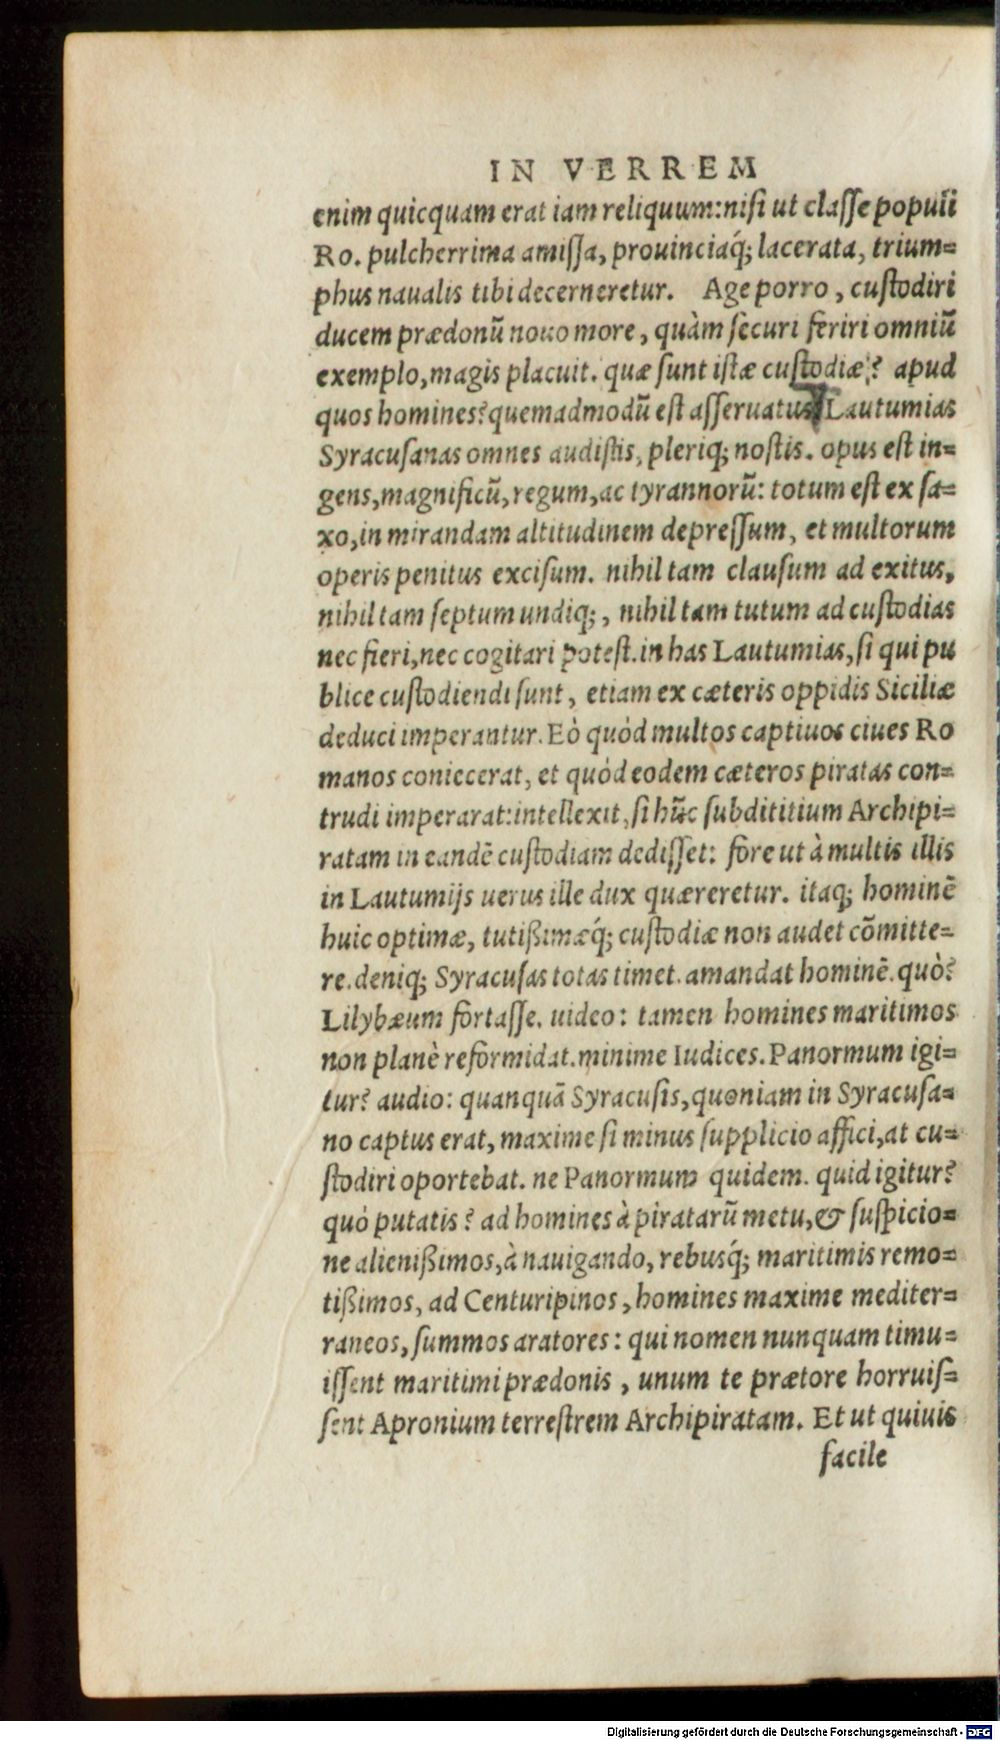 IN VERREM
enim quicquam erat iam reliquum:nisi ut classe populi
Ro. pulcherrima amissa, prouinciaq́; lacerata, trium=
phus naualis tibi decerneretur. Age porro, custodiri
ducem prædonū nouo more, quàm securi feriri omniū
exemplo,magis placuit. quæ sunt istæ custodiæ? apud
quos homines?quemadmodū est asseruatus Lautumias
Syracusanas omnes audistis, pleriq; nostis. opus est in=
gens,magnificū,regum,ac tyrannorū: totum est ex sa=
xo,in mirandam altitudinem depressum, et multorum
operis penitus excisum. nihil tam clausum ad exitus,
nihil tam septum undiq;, nihil tam tutum ad custodias
nec fieri,nec cogitari potest.in has Lautumias,si qui pu
blice custodiendi sunt, etiam ex cæteris oppidis Siciliæ
deduci imperantur. Eò quòd multos captiuos ciues Ro
manos coniecerat, et quòd eodem cæteros piratas con=
trudi imperarat:intellexit,si hūc subdititium Archipi=
ratam in eandē custodiam dedisset: fore ut à multis illis
in Lautumijs uerus ille dux quæreretur. itaq; hominē
huic optimæ, tutißimæq́; custodiæ non audet cōmitte=
re.deniq; Syracusas totas timet.amandat hominē.quò?
Lilybæum fortasse. uideo: tamen homines maritimos
non planè reformidat.minime Iudices.Panormum igi=
tur? audio: quanquā Syracusis,quoniam in Syracusa=
no captus erat, maxime si minus supplicio affici,at cu=
stodiri oportebat. ne Panormum quidem. quid igitur?
quò putatis? ad homines à piratarū metu,& suspicio=
ne alienißimos,à nauigando, rebusq́; maritimis remo=
tißimos, ad Centuripinos, homines maxime mediter=
raneos,summos aratores: qui nomen nunquam timu=
issent maritimi prædonis, unum te prætore horruis=
sent Apronium terrestrem Archipiratam. Et ut quiuis
facile
Digitalisierung gefördert durch die Deutsche Forschungsgemeinschaft - DFG